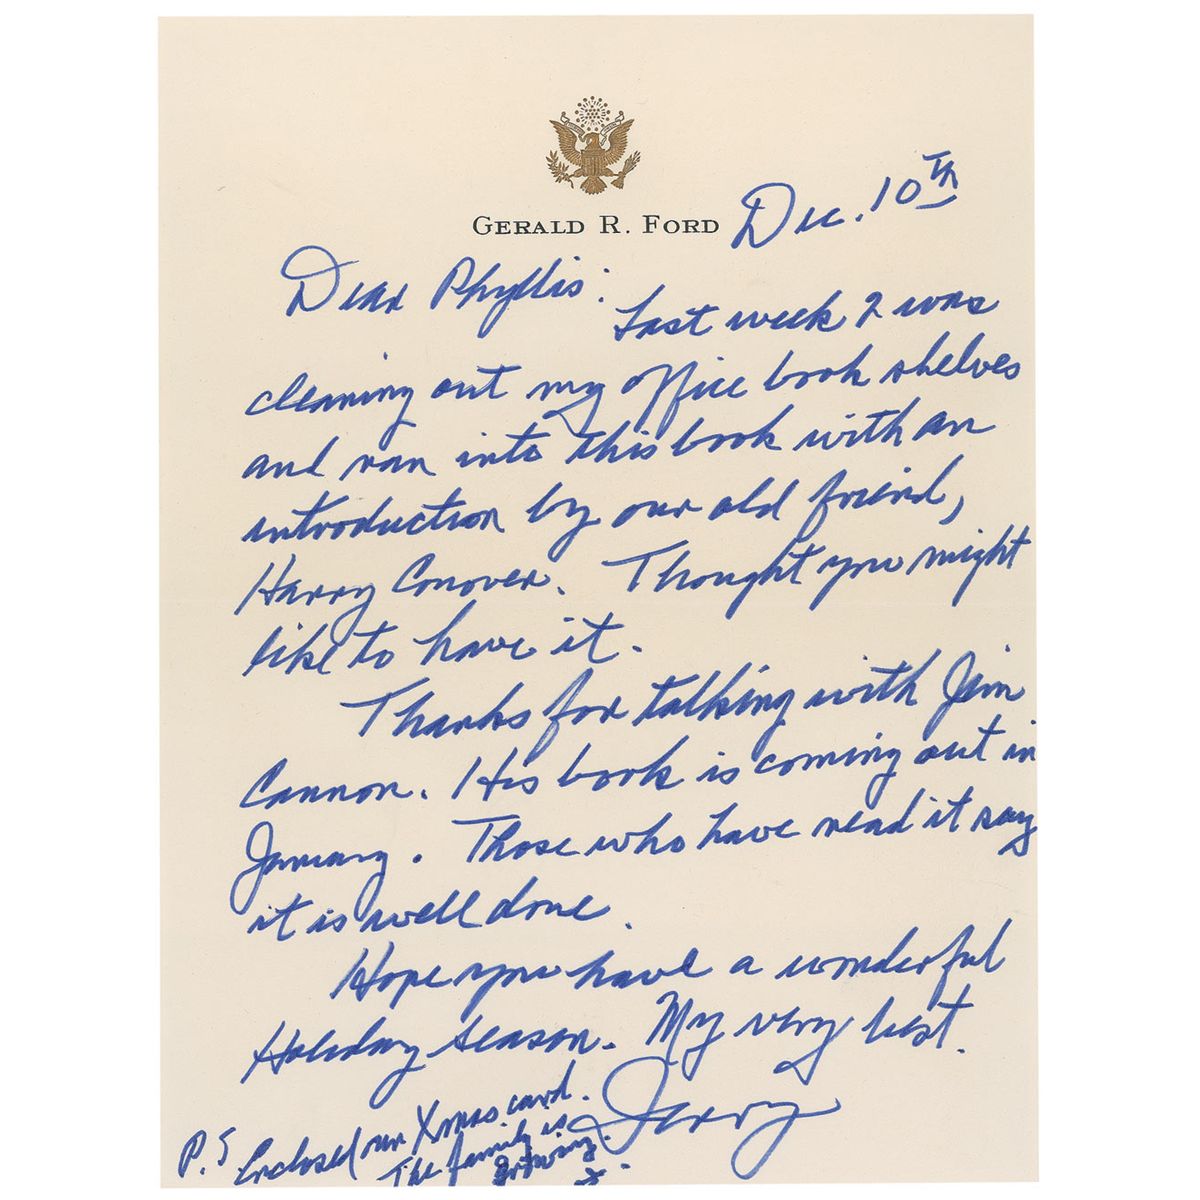 GERALD R. FORD
Dec. 10th
Dear Phyllis:
Last week I was
cleaning out my office book shelves
and ran into this book with an
introduction by our old friend,
Harry Conover. Thought you might
like to have it.
Thanks for talking with Jim
Cannon. His book is coming out in
January. Those who have read it say
it is well done.
Hope you have a wonderful
Holiday season. My very best.
Jerry
P.S Enclosed our Xmas card.
The family is
growing.